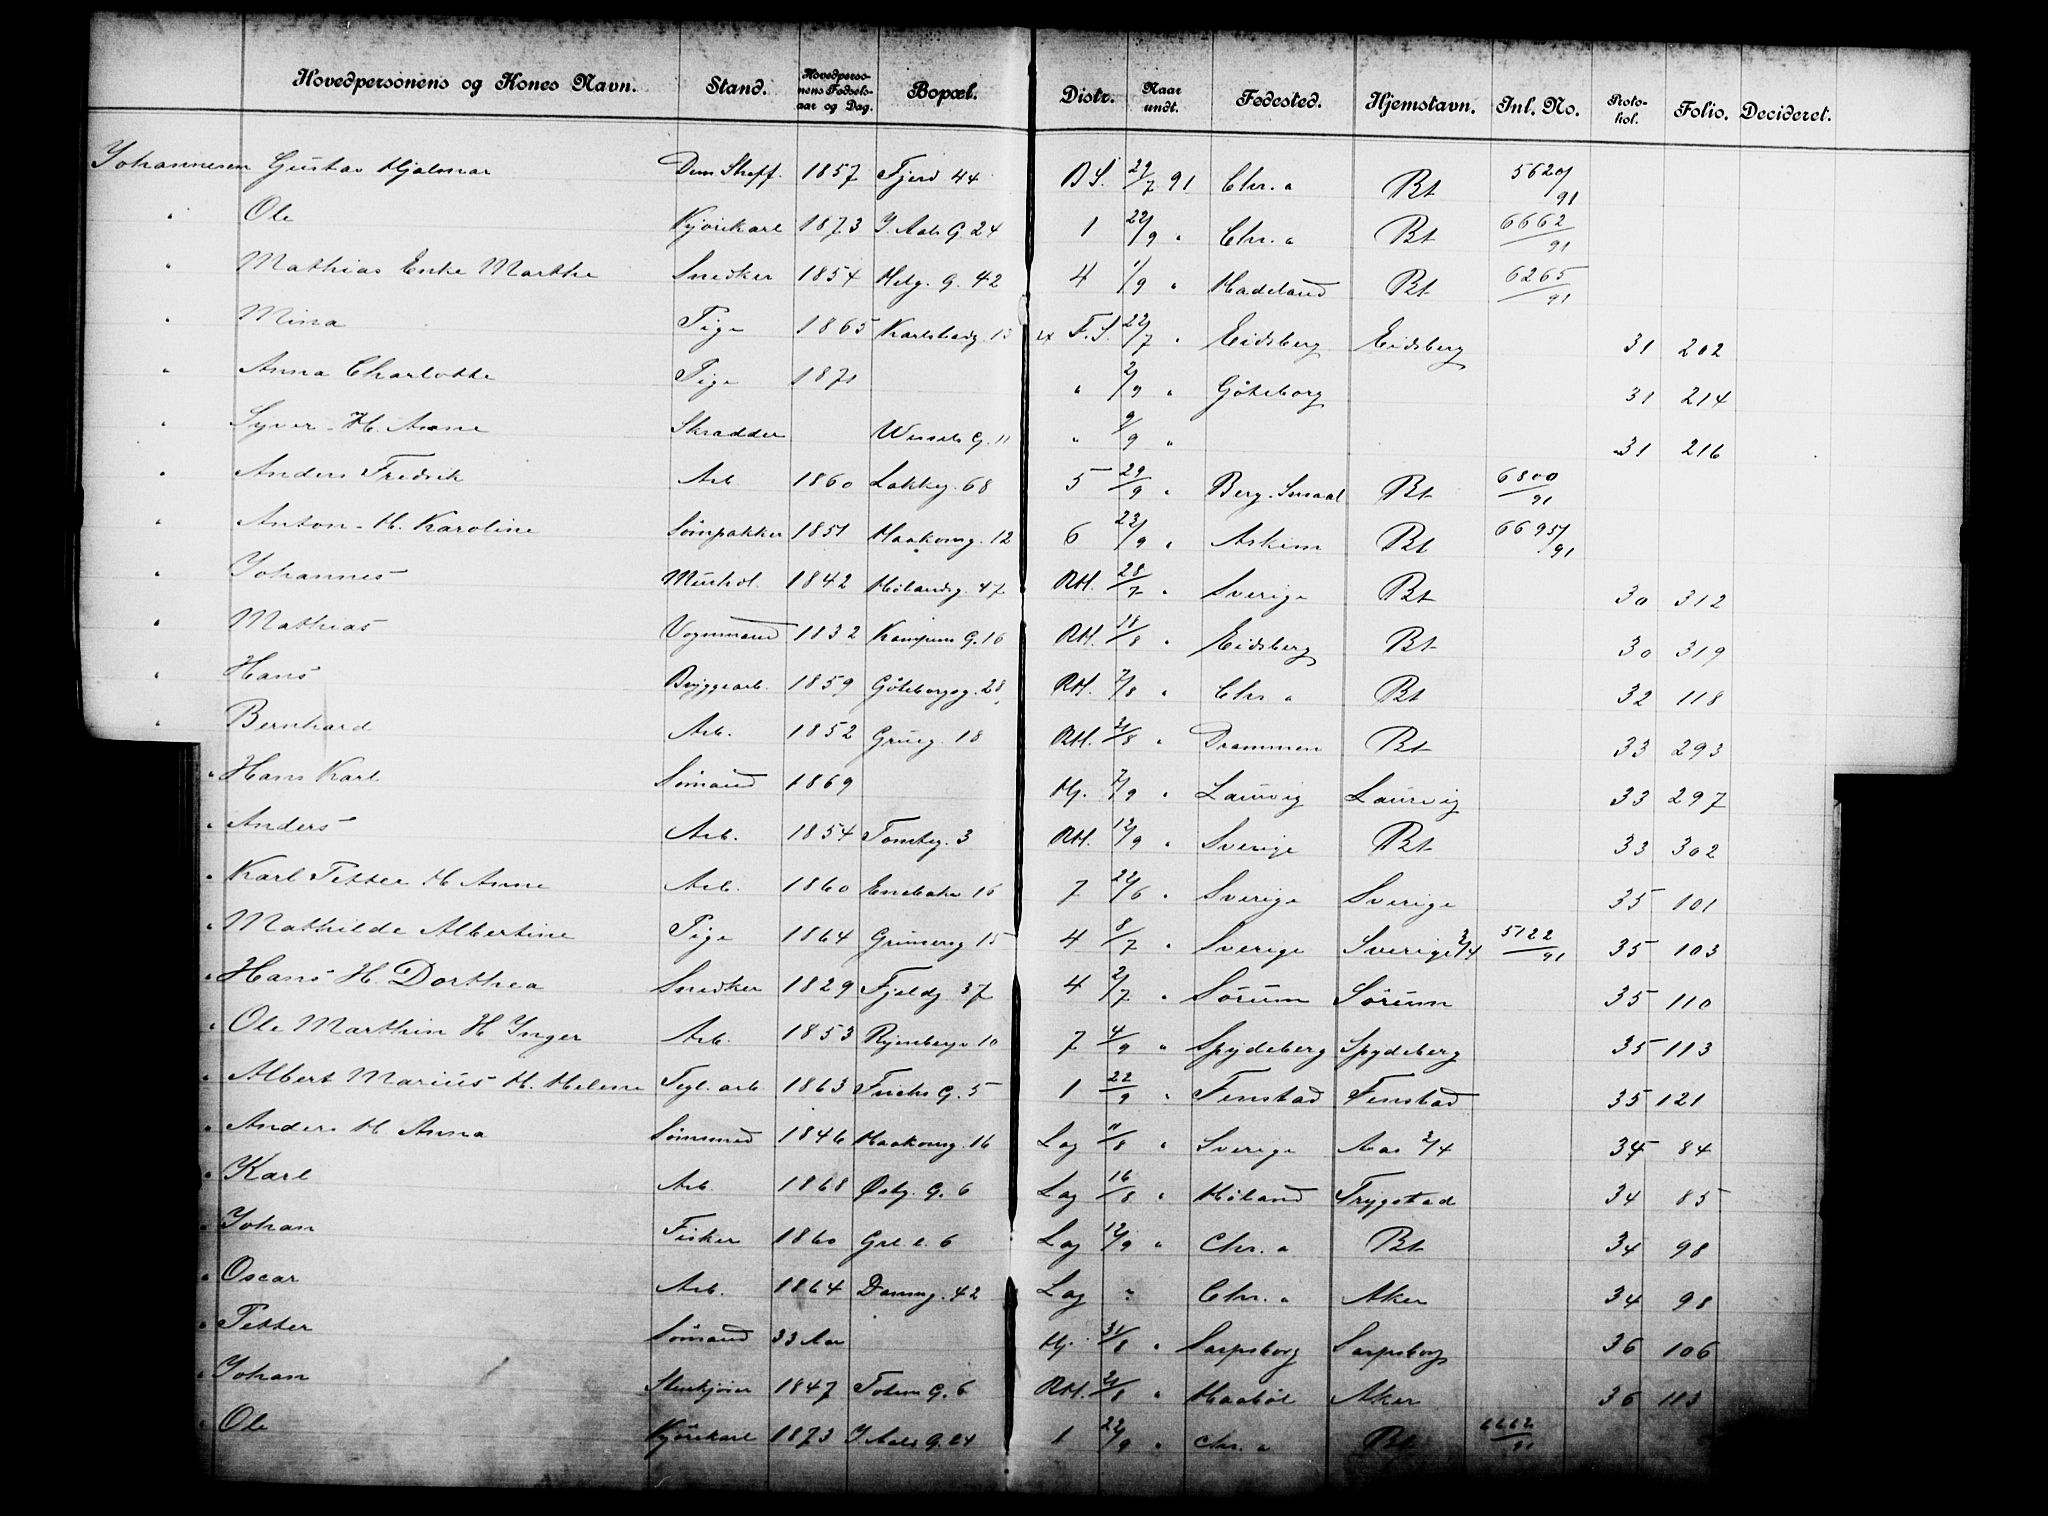 Hovedpersonens og Kones Navn. Stand. Hovedpersonens Fødselsaar og Dag. Bopæl. Distr. Naar undt. Fødested. Hjemstavn. Inl. No. Protokol. Folio. Decideret.
Johannesen Gustav Hjalmar 1857 Fjerd 44 B S. 91 Chr.a Bt 5620/91
" Ole Kjørekarl 1873 J. Aals G. 24 1 22/9 " Chr.a Bt 6662/91
" Mathias Enke Marthe Snedker 1854 Helg. G. 42 4 1/9 " Hadeland Bt 6265/91
" Mina Pige 1865 F.S. 22/7 " Eidsberg Eidsberg 31 202
" Anna Charlotte Pige 1871 " 2/9 " Göteborg 31 214
" Syver H. Anne Skrædder Wessels G. 11 " 9/9 " 31 216
" Anders Fredrik Arb 1860 Lakkeg. 68 5 29/9 " Berg. Smaal Bt 6800/91
" Anton H. Karoline Sømpakker 1851 Haakonsg. 12 6 23/9 " Askim Bt 6695/91
" Johannes Murhdl. 1842 Hølandsg. 47 RH. 28/7 " Sverige Bt 30 312
" Mathias Vognmand 1832 Kampens G. 16 RH. 18/8 " Eidsberg Bt 30 319
" Hans Bryggearb. 1859 Göteborgsg. 28 RH. 7/8 " Chr.a Bt 32 118
" Bernhard Arb. 1852 Grüeg. 18 RH. 31/8 " Drammen Bt 33 293
" Hans Karl Sømand 1869 Hj. 7/9 " Laurvig Laurvig 33 297
" Anders Arb. 1854 Tomteg. 3 RH. 12/9 " Sverige Bt 33 302
" Karl Petter H Anne Arb. 1860 Enebakv 16 7 22/6 " Sverige Sverige 35 101
" Mathilde Albertine Pige 1864 15 4 8/7 " Sverige Sverige 3/4 5122/91 35 103
" Hans H. Dorthea Snedker 1829 Fjeldg 37 4 2/7 " Sørum Sørum 35 110
" Ole Marthin H Inger Arb. 1853 Ryenbergv 10 7 4/9 " Spydeberg Spydeberg 35 113
" Albert Marius H. Helene Tegl. arb 1863 Fuchs G. 5 1 22/9 " Fenstad Fenstad 35 121
" Anders H Anna Sømand 1846 Haakonsg. 16 Lag 11/8 " Sverige Aas 3/4 34 84
" Karl Arb. 1868 Østg. G. 6 Lag 16/8 " Høland Trygstad 34 85
" Johan Fisker 1860 6 Lag 12/9 " Chr.a Bt 34 98
" Oscar Arb. 1864 Dammg. 42 Lag " Chr.a Aker 34 98
" Petter Sømand 33 Aar Hj. 31/8 " Sarpsborg Sarpsborg 36 106
" Johan Stenkjører 1847 Totens G. 6 RH. 21/8 " Haabøl Aker 36 113
" Ole Kjørekarl 1873 J Aals G. 24 1 22/9 " Chr.a Bt 6662/91